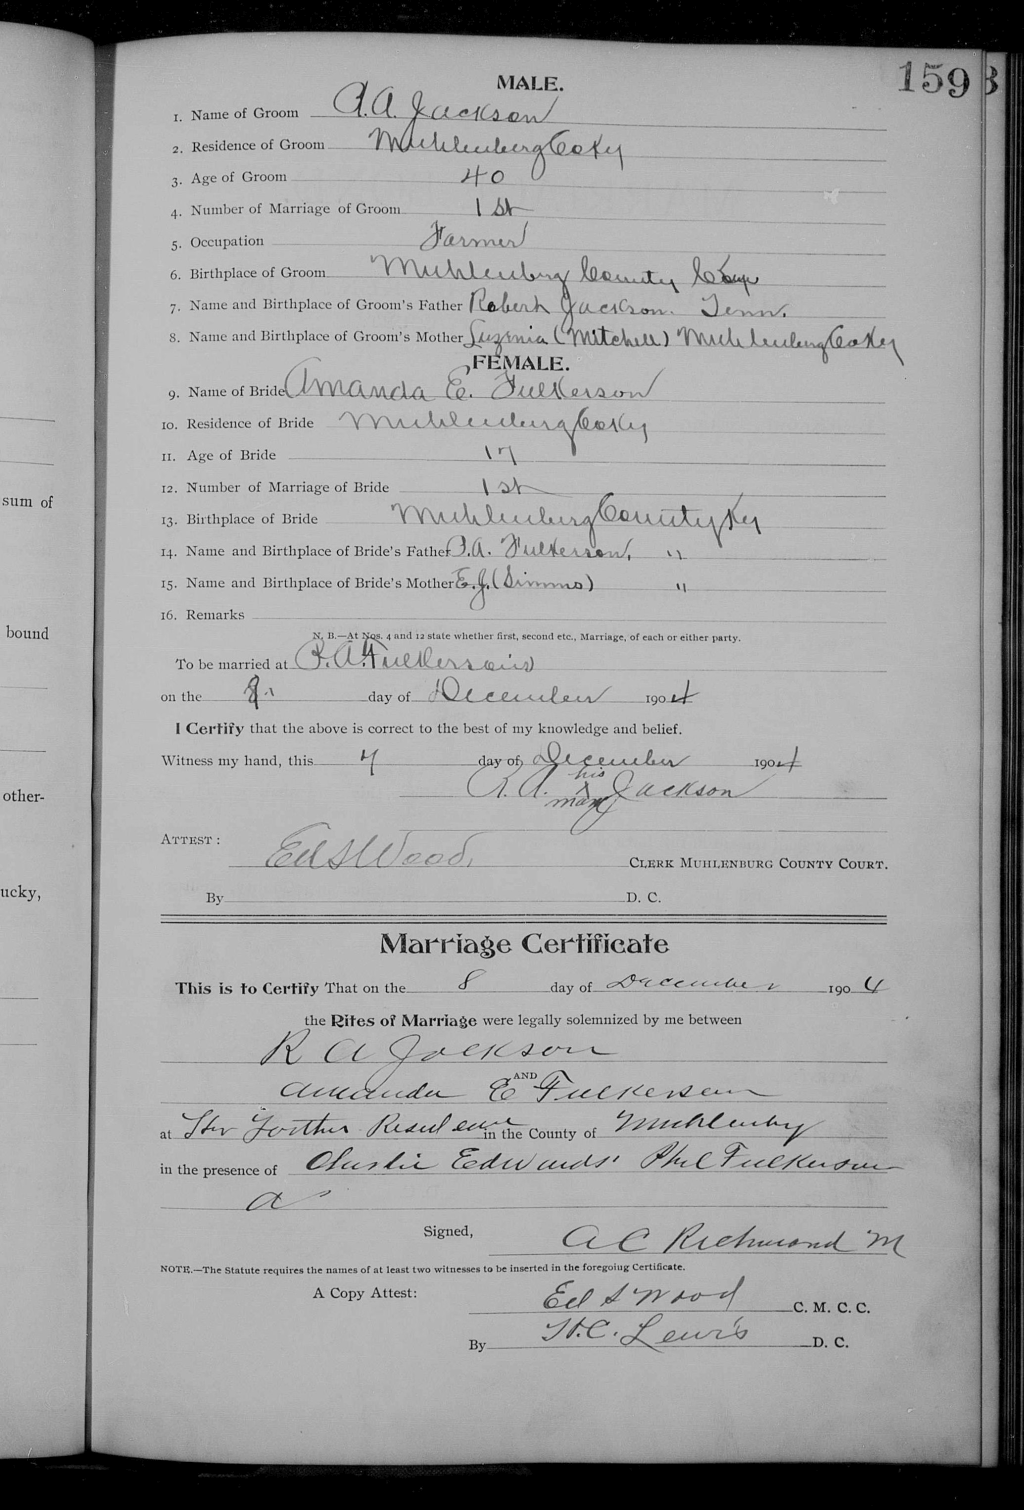 159
MALE.
1. Name of Groom R.A. Jackson
2. Residence of Groom Muhlenberg Co Ky
3. Age of Groom 40
4. Number of Marriage of Groom 1st
5. Occupation Farmer
6. Birthplace of Groom Muhlenberg County
7. Name and Birthplace of Groom's Father Robert Jackson. Tenn.
8. Name and Birthplace of Groom's Mother Luzinia (Mitchell) Muhlenberg Co Ky
FEMALE.
9. Name of Bride Amanda E. Fulkerson
10. Residence of Bride Muhlenberg Co Ky
11. Age of Bride 17
12. Number of Marriage of Bride 1st
13. Birthplace of Bride Muhlenberg County Ky
14. Name and Birthplace of Bride's Father P.A. Fulkerson, "
15. Name and Birthplace of Bride's Mother E.J. (Simms) "
16. Remarks
N. B.—At Nos. 4 and 12 state whether first, second etc., Marriage, of each or either party.
To be married at P.A. Fulkersons
on the 8 day of December 1904
I Certify that the above is correct to the best of my knowledge and belief.
Witness my hand, this 7 day of December 1904
R. A. his x mark Jackson
ATTEST: Ed S Wood, CLERK MUHLENBURG COUNTY COURT.
By D. C.
Marriage Certificate
This is to Certify That on the 8 day of December 1904
the Rites of Marriage were legally solemnized by me between
R A Jackson
AND
Amanda E Fulkerson
at Her Fother Residence in the County of Muhlenberg
in the presence of Edwards Phil Fulkerson
a
Signed, A C Richmond M
NOTE.—The Statute requires the names of at least two witnesses to be inserted in the foregoing Certificate.
A Copy Attest: Ed S Wood C. M. C. C.
By H.C. Lewis D. C.
sum of
bound
other-
ucky,